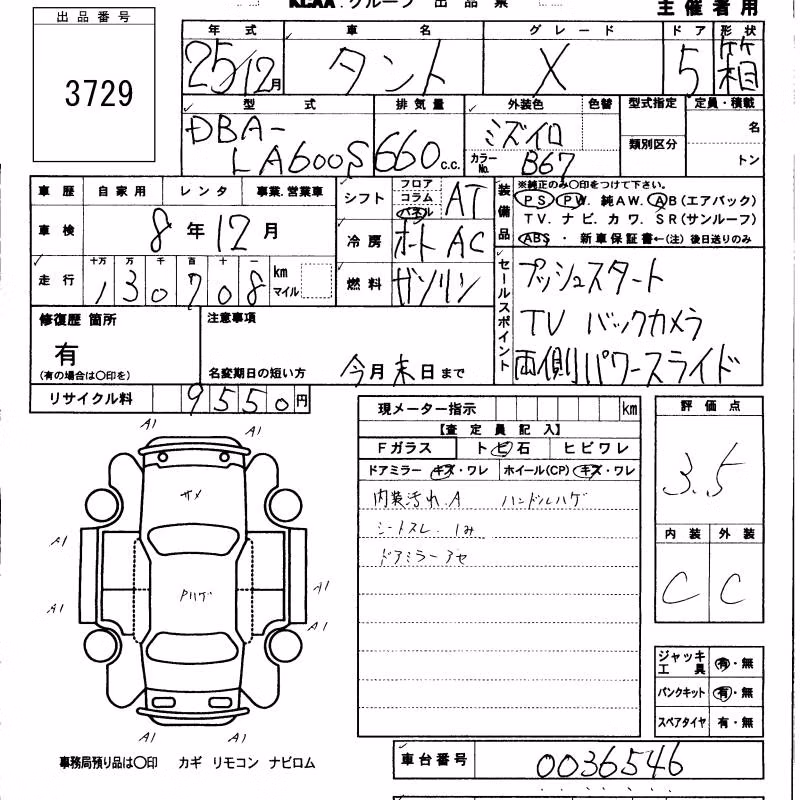 KCAA.グループ 出品票
主催者用
出品番号
3729
年式 車名 グレード ドア 形状
25/12月 タント X 5 箱
型式 排気量 外装色 色替 型式指定 定員・積載
DBA-LA600S 660c.c. ミズイロ 名
カラーNo. B67 類別区分 トン
車歴 自家用 レンタ 事業.営業車
車検 8年12月
走行 十万 万 千 百 十 一
130708 km マイル
シフト フロア コラム パネル AT
冷房 オート AC
燃料 ガソリン
装備品 ※純正のみ〇印をつけて下さい。
PS PW. 純AW. AB(エアバック)
TV. ナビ. カワ. SR(サンルーフ)
ABS ・ 新車保証書←(注) 後日送りのみ
セールスポイント
プッシュスタート
TV バックカメラ
両側パワースライド
修復歴 箇所
有
(有の場合は〇印を)
注意事項
名変期日の短い方 今月末日まで
リサイクル料 9550円
現メーター指示 km
【査定員記入】
Fガラス トビ石 ヒビワレ
ドアミラー キズ・ワレ ホイール(CP) キズ・ワレ
内装汚れ.A ハンドルハゲ
シートスレ.1み
ドアミラーアセ
評価点
3.5
内装 外装
C C
ジャッキ工具 有・無
パンクキット 有・無
スペアタイヤ 有・無
A1 A1
サメ
A1
Pハゲ
A1 A1
A1
A1 A1
事務局預り品は〇印 カギ リモコン ナビロム
車台番号 0036546